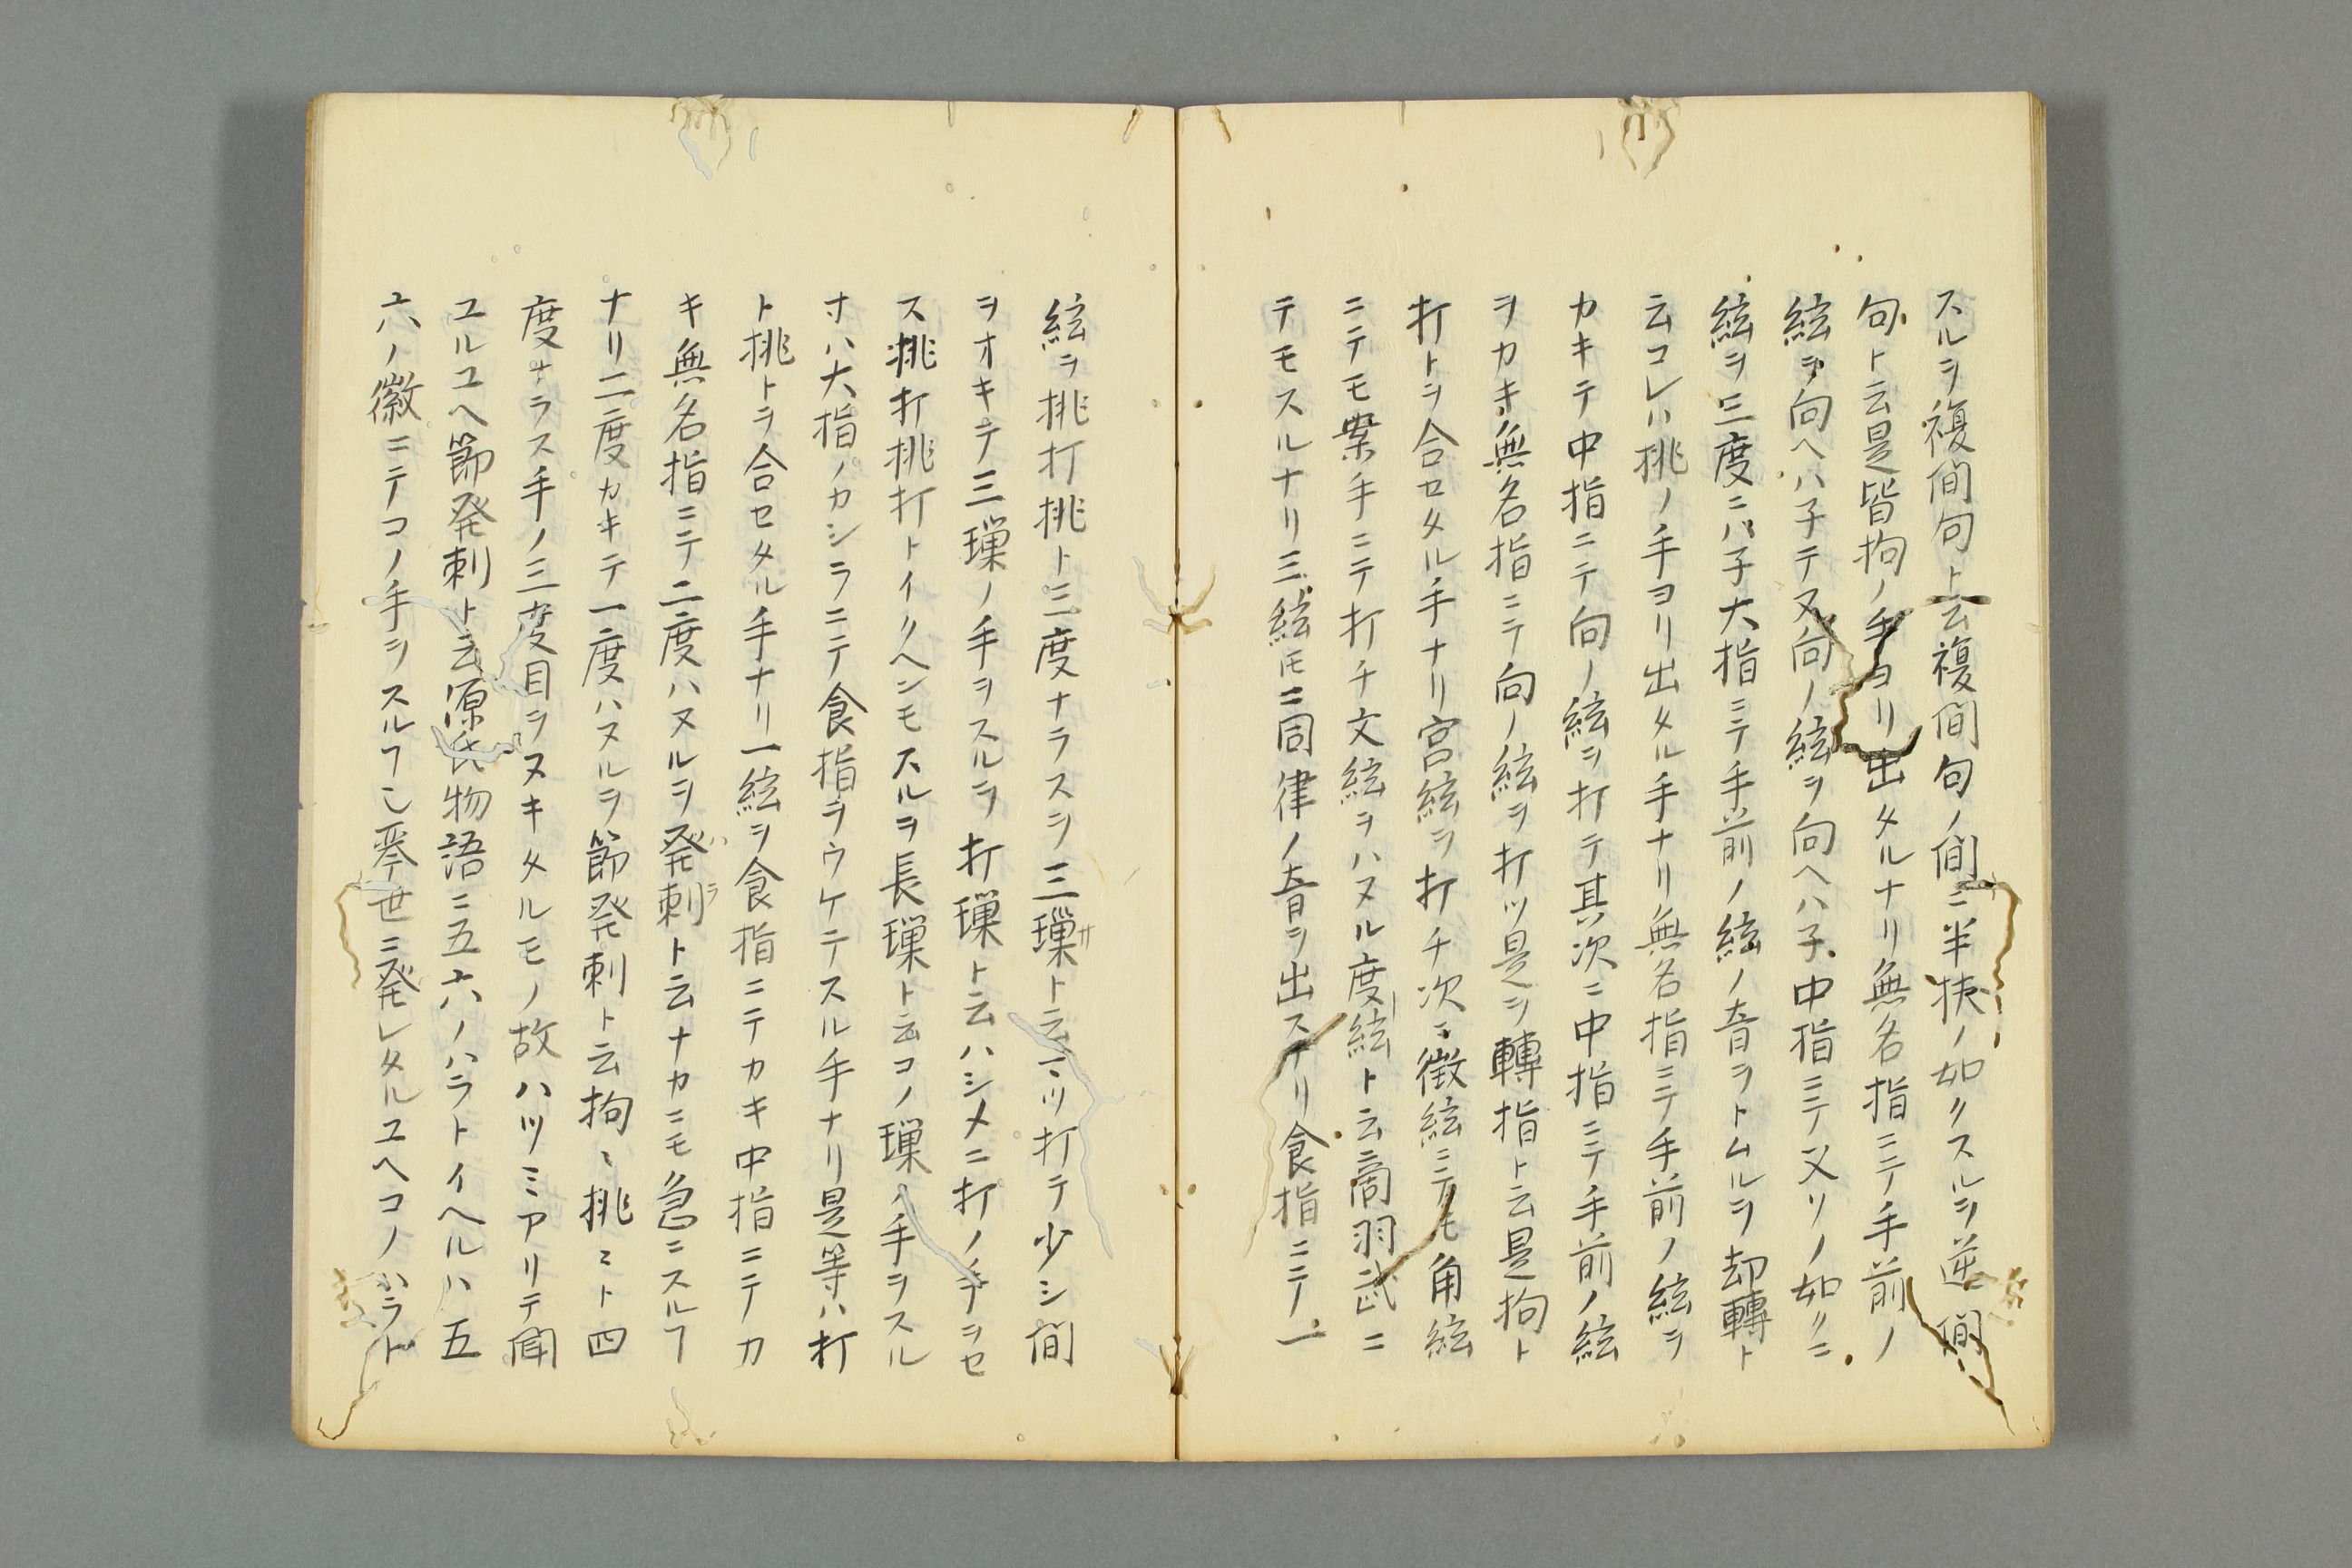 スルヲ複間句ト云複間句ノ間ニ半挟ノ如クスルヲ逆間
句ト云是皆拘ノ手ヨリ出タルナリ無名指ニテ手前ノ
絃ヲ向ヘハ子テ又向ノ絃ヲ向ヘハ子中指ニテ又リノ如クニ
絃ヲ三度ニハ子大指ニテ手前ノ絃ノ音ヲトムルヲ却轉ト
云コレハ挑ノ手ヨリ出タル手ナリ無名指ニテ手前ノ絃ヲ
カキテ中指ニテ向ノ絃ヲ打テ其次ニ中指ニテ手前ノ絃
ヲカキ無名指ニテ向ノ絃ヲ打ツ是ヲ轉指ト云是拘ト
打トヲ合セタル手ナリ宮絃ヲ打チ次ニ徴絃ニテモ角絃
ニテモ案手ニテ打チ文絃ヲハヌル度絃ト云商羽武ニ
テモスルナリ三絃モニ同律ノ音ヲ出スナリ食指ニテ一
絃ヲ挑打挑ト三度ナラスヲ三璅ト云一ツ打テ少シ間
ヲオキテ三璅ノ手ヲスルヲ打璅ト云ハシメニ打ノ手ヲセ
ス挑打挑打トイクヘンモスルヲ長璅ト云コノ璅ノ手ヲスル
寸ハ大指ノカシラニテ食指ヲウケテスル手ナリ是等ハ打
ト挑トヲ合セタル手ナリ一絃ヲ食指ニテカキ中指ニテカ
キ無名指ニテ二度ハヌルヲ発刺ト云ナカニモ急ニスルヿ
ナリ二度カキテ一度ハヌルヲ節発刺ト云拘ミ挑ミト四
度ナラス手ノ三度目ヲヌキタルモノ故ハツミアリテ聞
ユルユヘ節発刺ト云源氏物語ニ五六ノハラトイヘルハ五
六ノ徽ニテコノ手ヲスルヿ乄琴世ニ発レタルユヘコノハラト